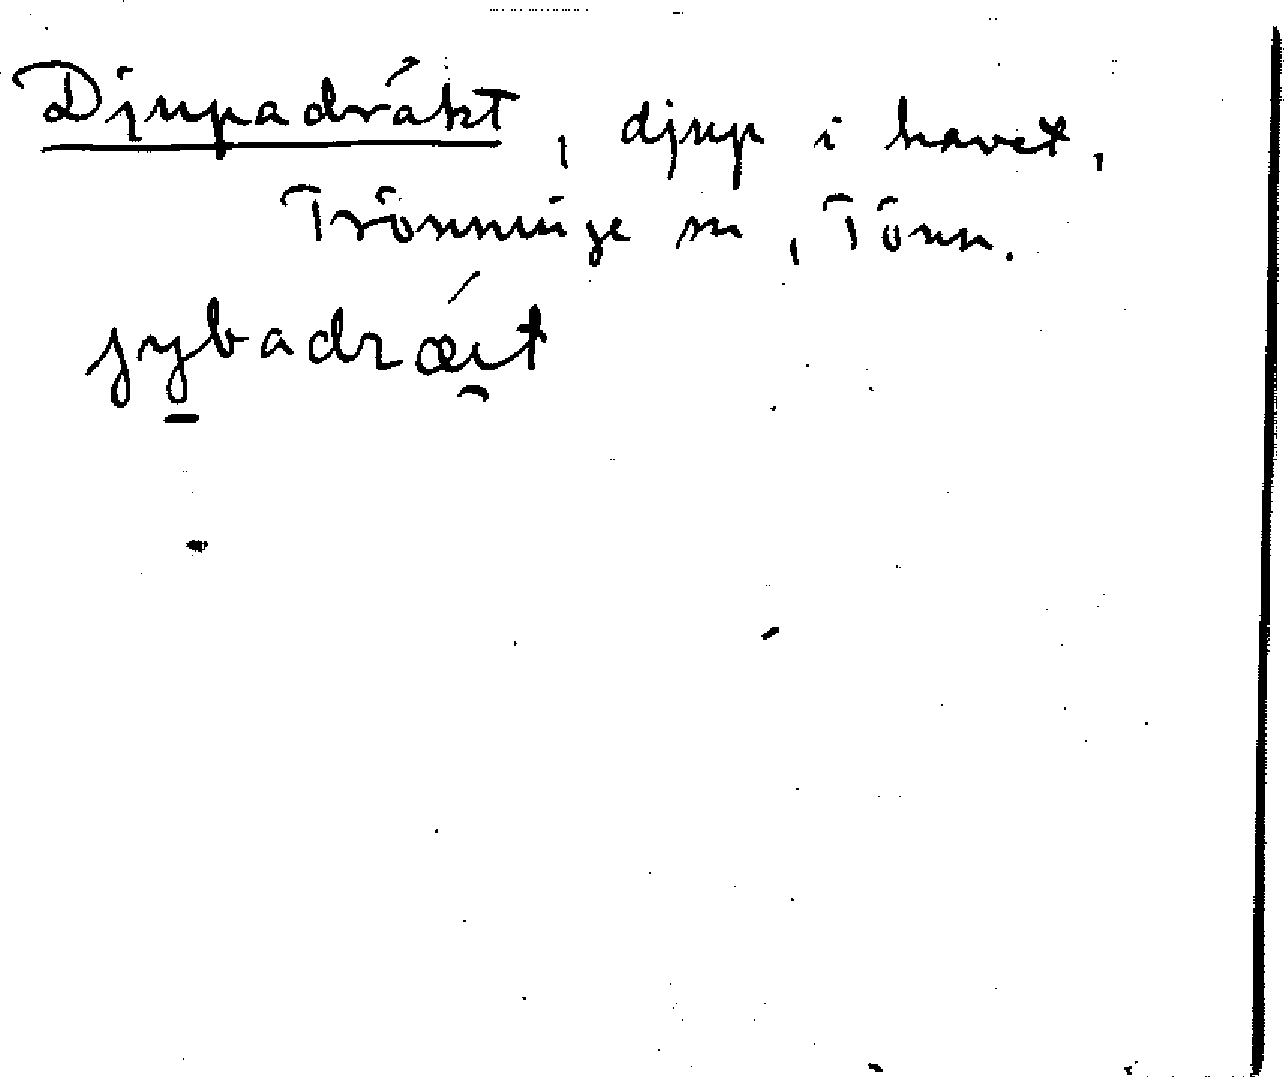 Djupadräkt, djup i havet,
Trönninge sn, Tönn.
jybadræit